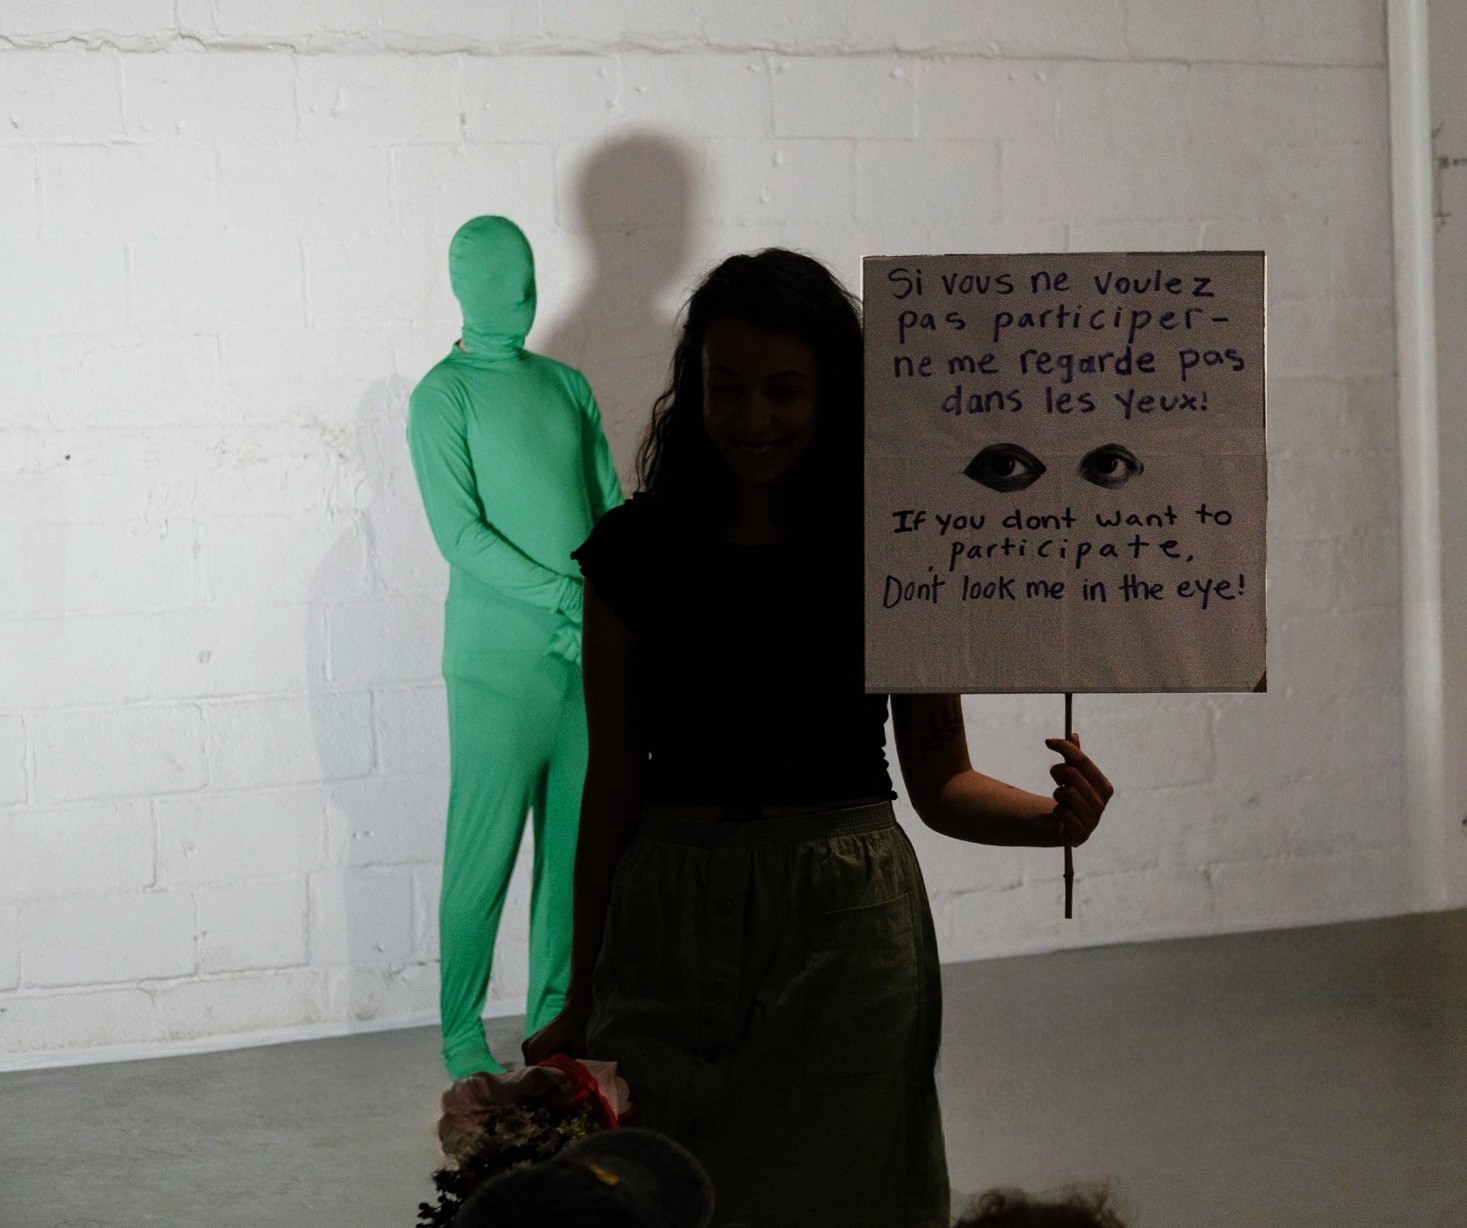 Si vous ne voulez
pas participer-
ne me regarde pas
dans les yeux!
If you dont want to
participate,
Don't look me in the eye!